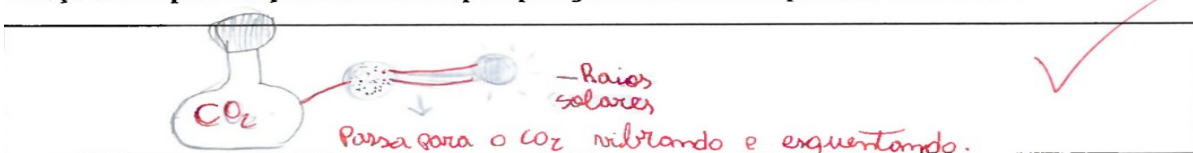 CO2
-Raios
solares
Passa para o CO2 vibrando e esquentando.